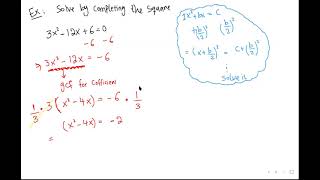 Ex: Solve by Completing the Square
3x² - 12x + 6 = 0
-6 -6
3x² - 12x = -6
gcf for Coefficients
1/3 · 3 (x² - 4x) = -6 · 1/3
(x² - 4x) = -2
=
1x² + bx = C
+(b/2)² (b/2)²
= (x + b/2)² = C + (b/2)²
Solve it